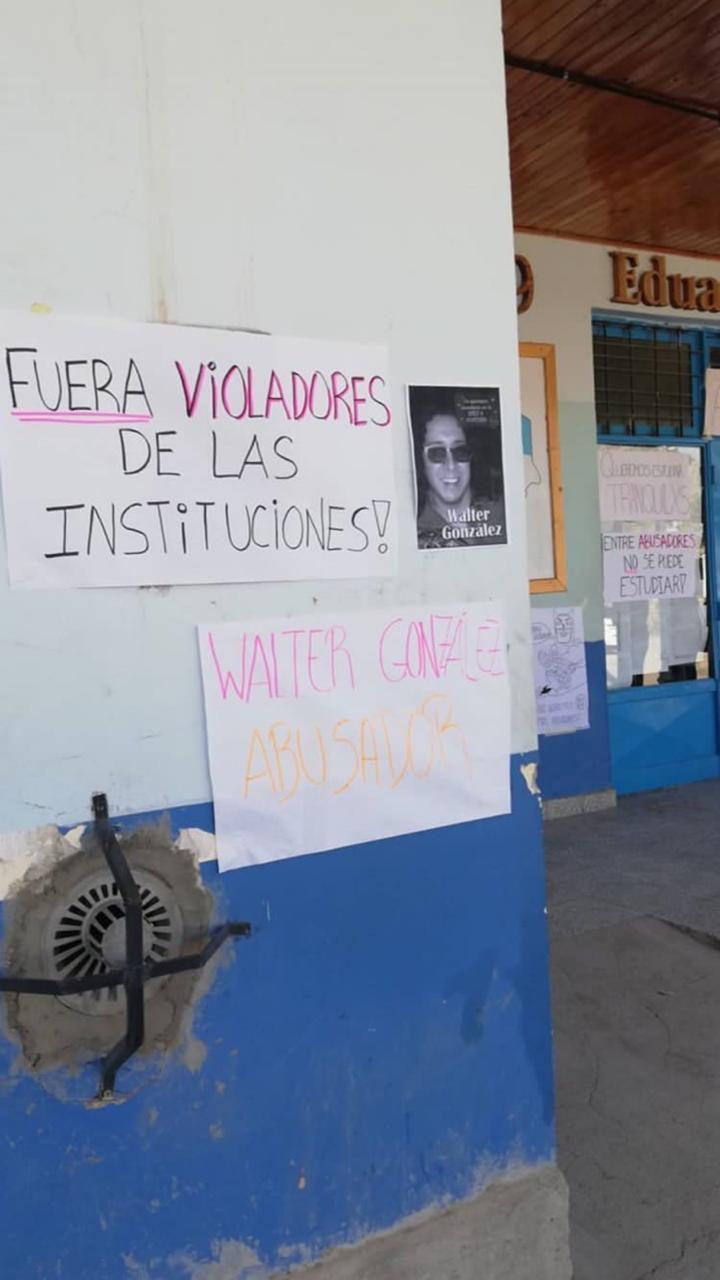 FUERA VIOLADORES
DE LAS
INSTITUCIONES!
Walter
González
WALTER GONZÁLEZ
ABUSADOR
9 Edua
QUEREMOS ESTUDIAR
TRANQUILXS
ENTRE ABUSADORES
NO SE PUEDE
ESTUDIAR!